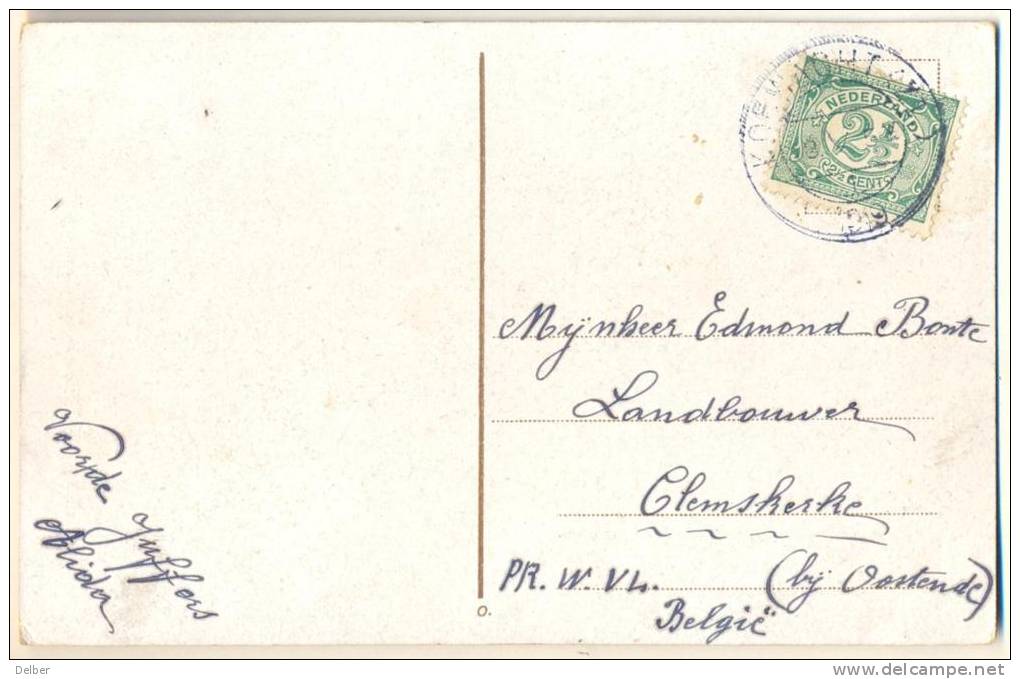 NEDERLAND
2½
2½ CENT
Mÿnheer Edmond Bonte
Landbouwer
Clemskerke
PR. W. VL. (bÿ Oostende)
België
Voor de Juffers
Alida
O.
Delber
http://www.delcampe.net